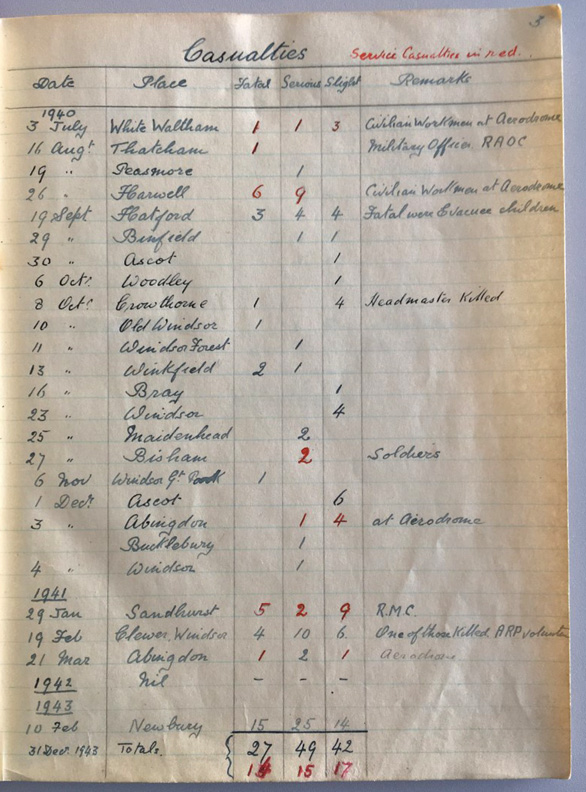 3
Casualties Service Casualties in red.
Date Place Fatal Serious Slight Remarks
1940
3 July White Waltham 1 1 3 Civilian Workmen at Aerodrome
16 Augt Thatcham 1 Military Officer RAOC
19 " Peasmore 1
26 " Harwell 6 9 Civilian Workmen at Aerodrome
19 Sept Hatford 3 4 4 Fatal were Evacuee children
29 " Binfield 1 1
30 " Ascot 1
6 Octr Woodley 1
8 Octr Crowthorne 1 4 Headmaster Killed
10 " Old Windsor 1
11 " Windsor Forest 1
13 " Winkfield 2 1
16 " Bray 1
23 " Windsor 4
25 " Maidenhead 2
27 " Bisham 2 Soldiers
6 Nov Windsor Gt Park 1
1 Decr Ascot 6
3 " Abingdon 1 4 at Aerodrome
Bucklebury 1
4 " Windsor 1
1941
29 Jan Sandhurst 5 2 9 R.M.C.
19 Feb Clewer, Windsor 4 10 6 One of those Killed ARP volunteer
21 Mar Abingdon 1 2 1 Aerodrome
1942 Nil - - -
1943
10 Feb Newbury 15 25 14
31 Decr 1943 Totals. { 27 49 42
15 17